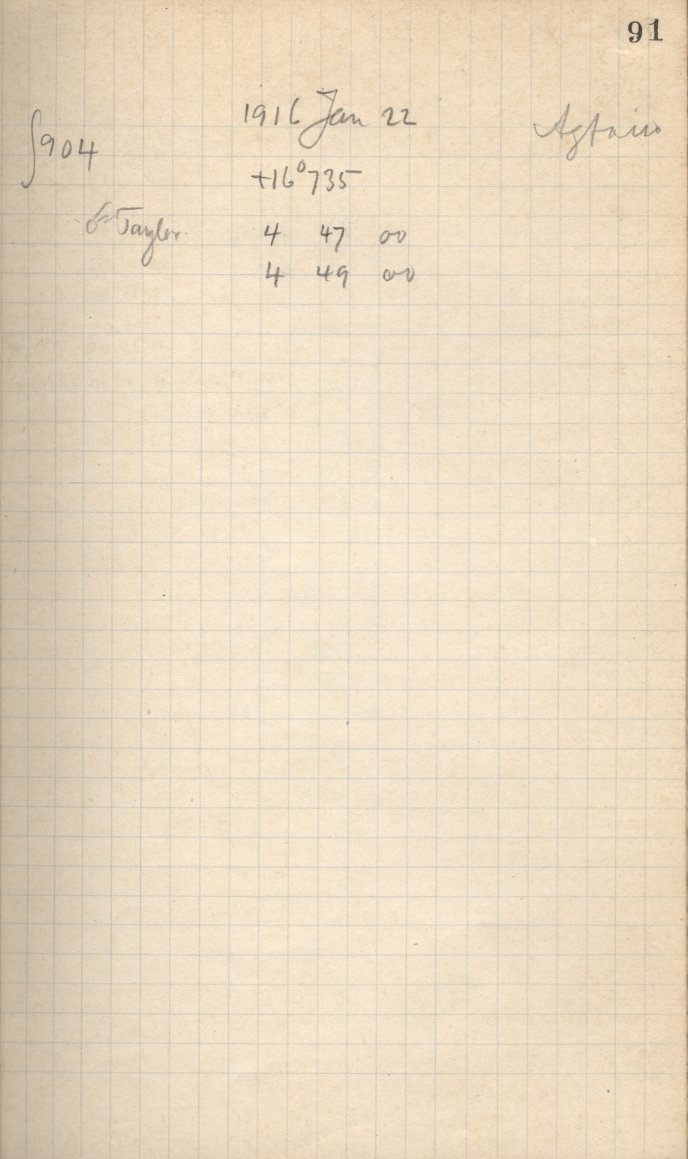 91
1916 Jan 22
∫904
+16°735
Taylor 4 47 00
4 49 00